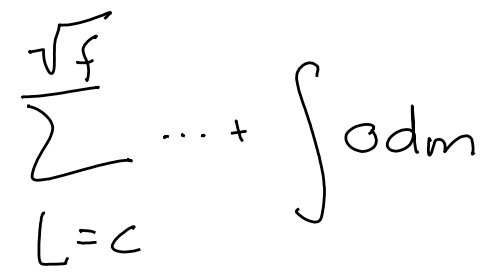 \sum_{L=c}^{\sqrt{f}} \cdots + \int 0dm